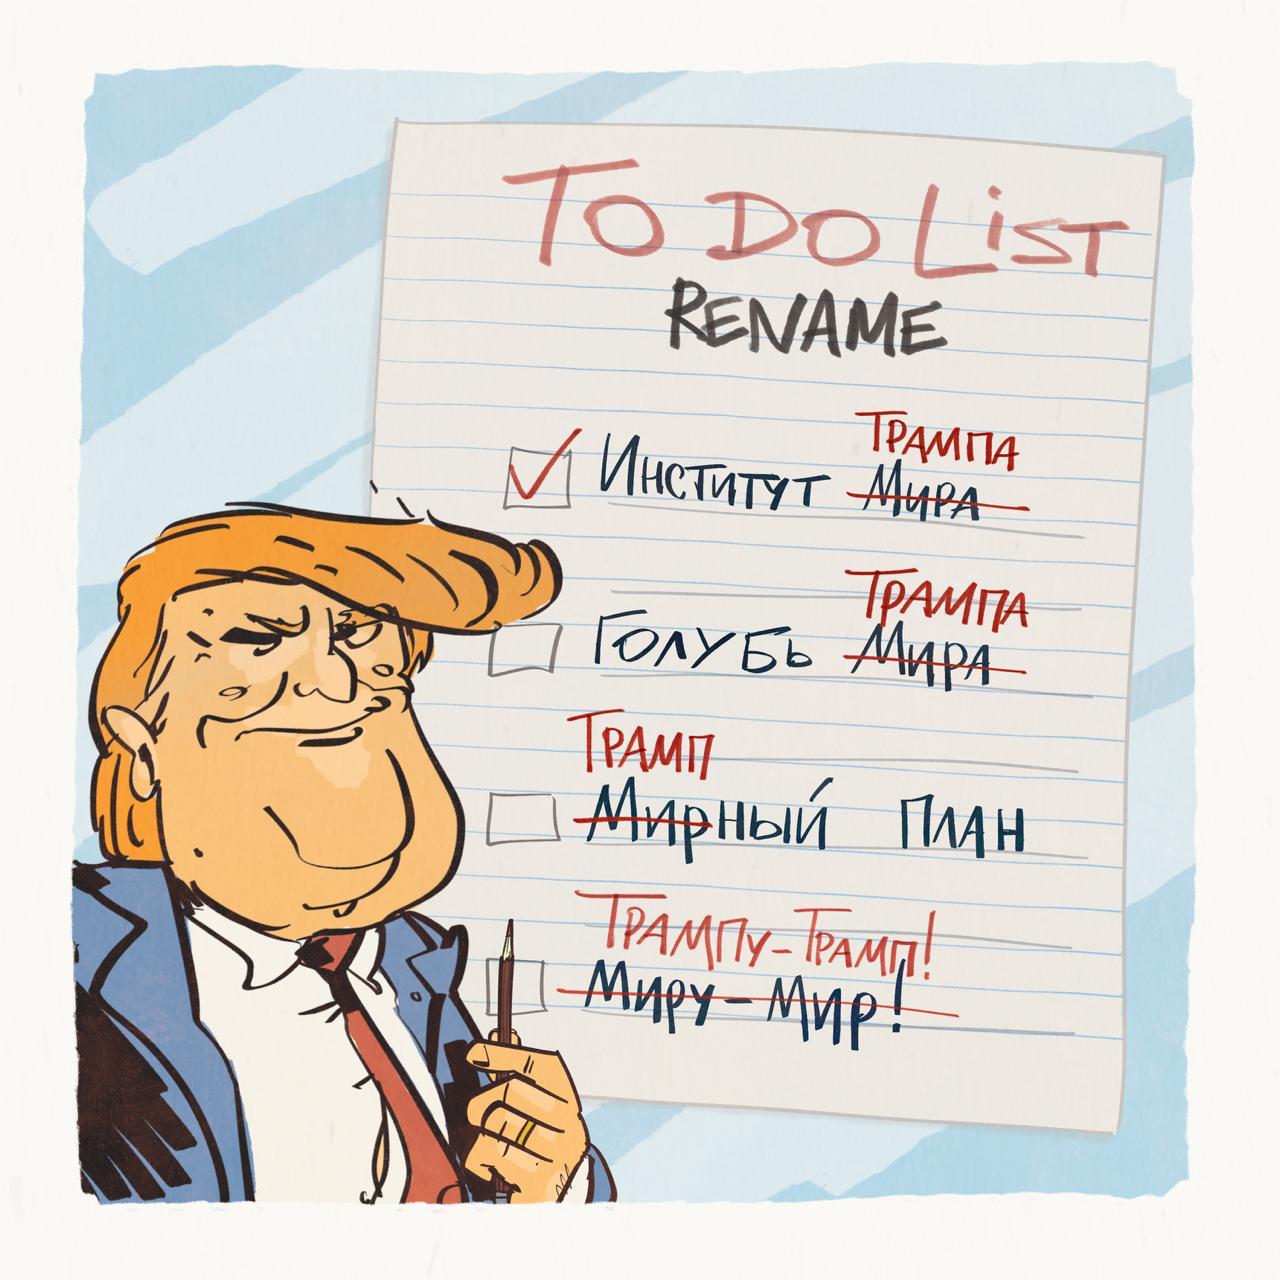 To Do List
RENAME
Трампа
Институт Мира
Трампа
Голубь Мира
Трамп
Мирный план
Трампу-Трамп!
Миру-Мир!